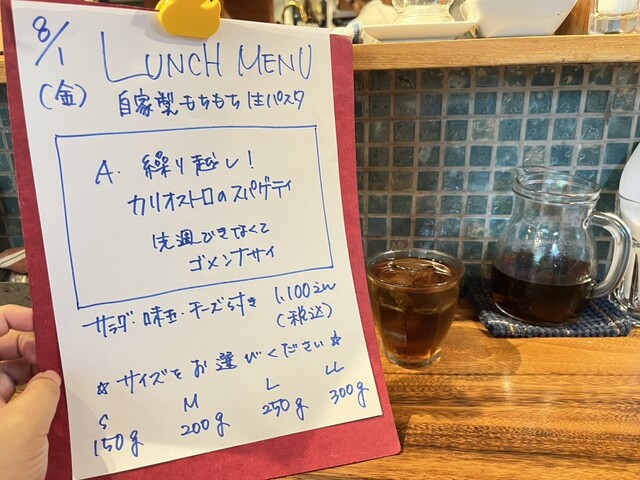 8/1
(金)
LUNCH MENU
自家製もちもち生パスタ
A. 繰り越し!
カリオストロのスパゲティ
先週できなくて
ゴメンナサイ
サラダ・味玉・チーズらすき 1,100えん
(税込)
☆サイズをお選びください☆
S M L LL
150g 200g 250g 300g